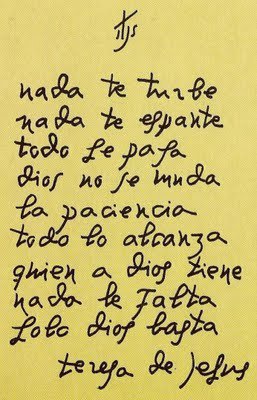 jhs
nada te turbe
nada te espante
todo se pasa
dios no se muda
la paciencia
todo lo alcanza
quien a dios tiene
nada le falta
solo dios basta
teresa de jesus